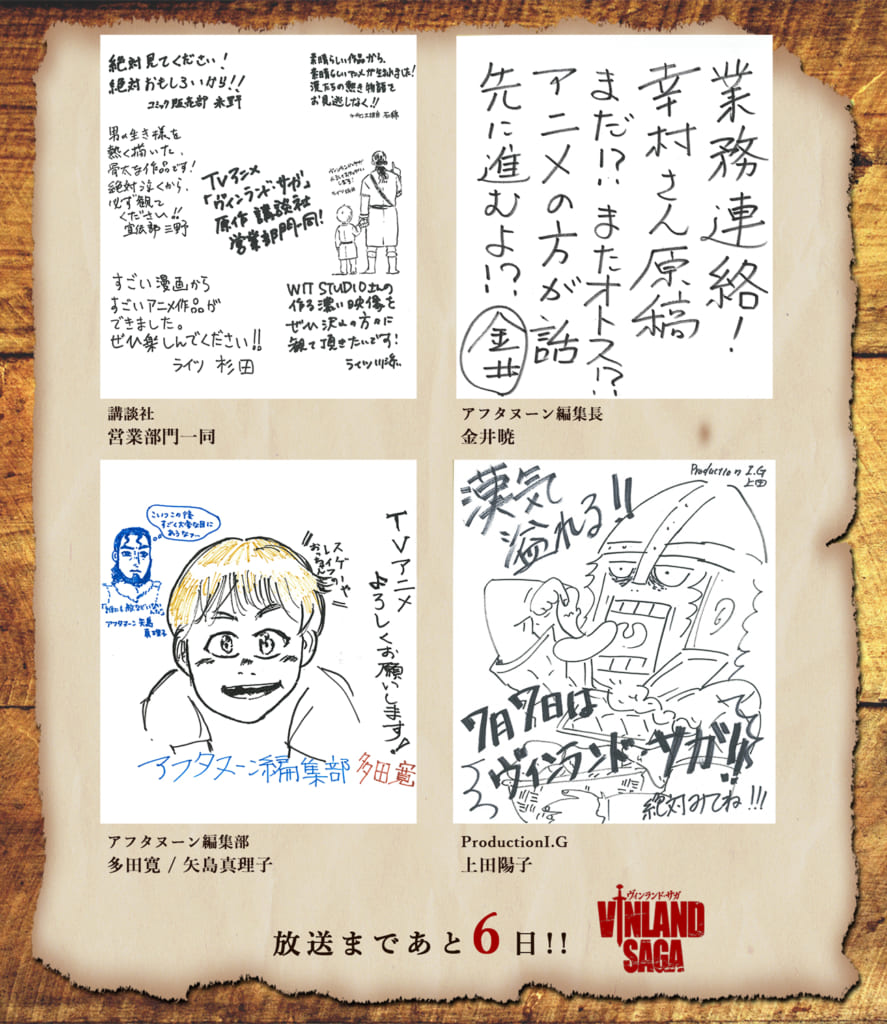 絶対見てください!
絶対おもしろいから!!
コミック販売部 永野
素晴らしい作品から、
素晴らしいアニメが生まれました!
漢たちの熱き物語を
お見逃しなく!!
男の生き様を
熱く描いた、
骨太な作品です!
絶対泣くから、
必ず観て
ください!!
宣伝部 三野
TVアニメ
「ヴィンランド・サガ」
原作 講談社
営業部門一同!
すごい漫画から
すごいアニメ作品が
できました。
ぜひ楽しんでください!!
ライツ 杉田
WIT STUDIOさんの
作る濃い映像を
ぜひ沢山の方々に
観て頂きたいです!
講談社
営業部門一同
業務連絡!
幸村さん原稿
まだ!? またオトス!?
アニメの方が話
先に進むよ!?
金井
アフタヌーン編集長
金井暁
こいつこの後
すごく大変な目に
あうなァ…
アフタヌーン 矢島
真理子
スゲーや
TVアニメ
よろしくお願いします!
アフタヌーン編集部 多田寛
アフタヌーン編集部
多田寛 / 矢島真理子
Production I.G
上田
漢気
溢れる!!
7月7日は
ヴィンランド・サガ!!
絶対みてね!!!
ProductionI.G
上田陽子
放送まであと6日!!
ヴィンランド・サガ
VINLAND
SAGA